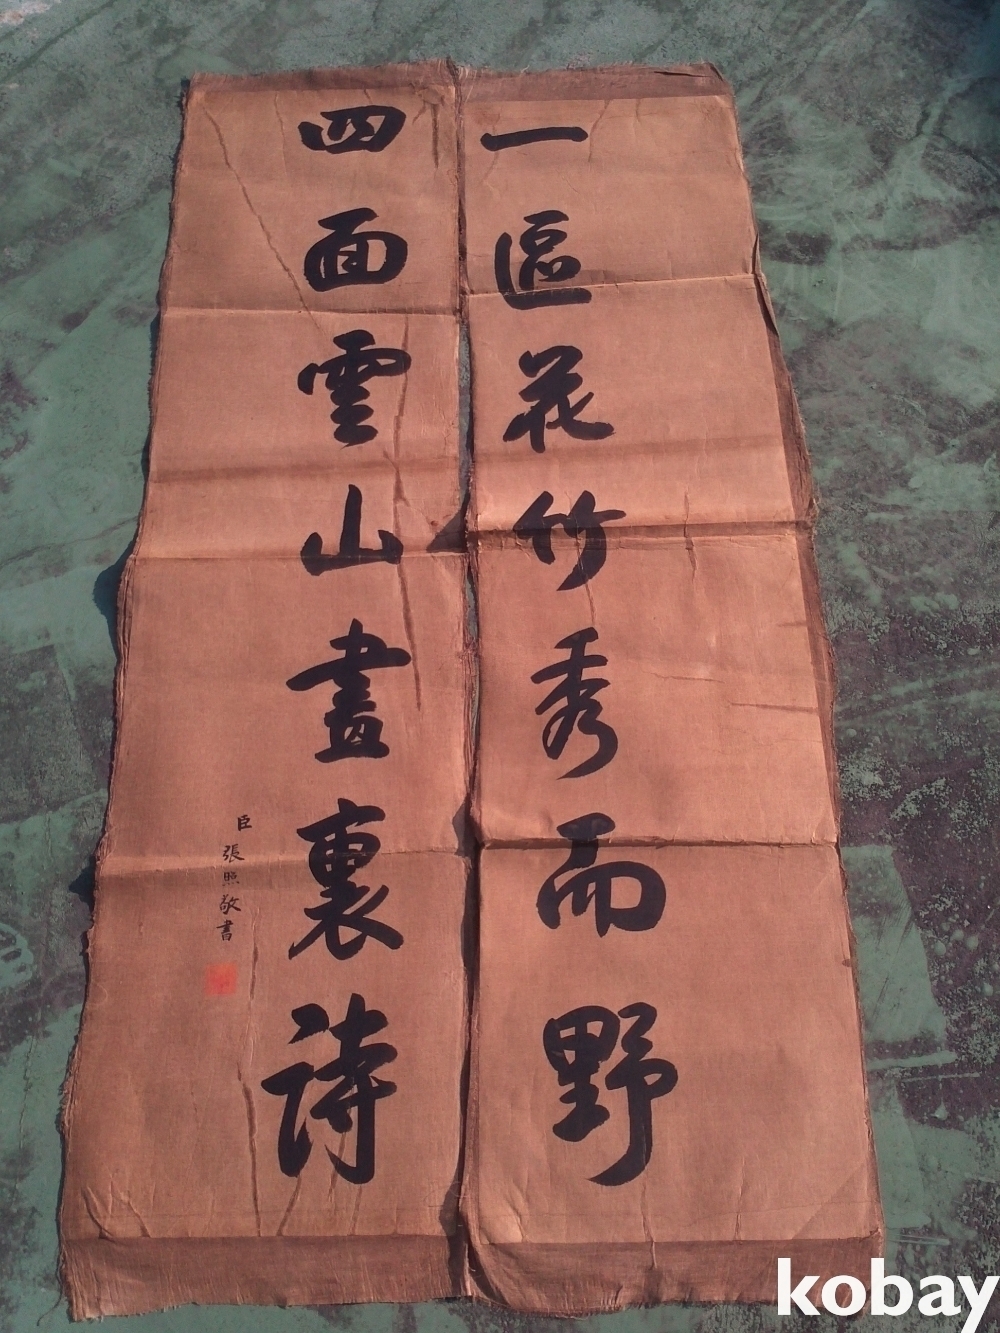 一區花竹秀而野
四面雲山畫裏詩
臣張照敬書
kobay